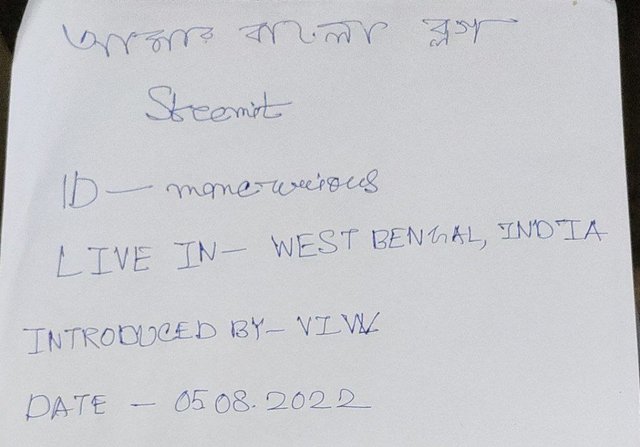 আমার বাংলা ব্লগ
Steemit
ID —
LIVE IN — WEST BENGAL, INDIA
INTRODUCED BY — VIVV
DATE — 05.08.2022